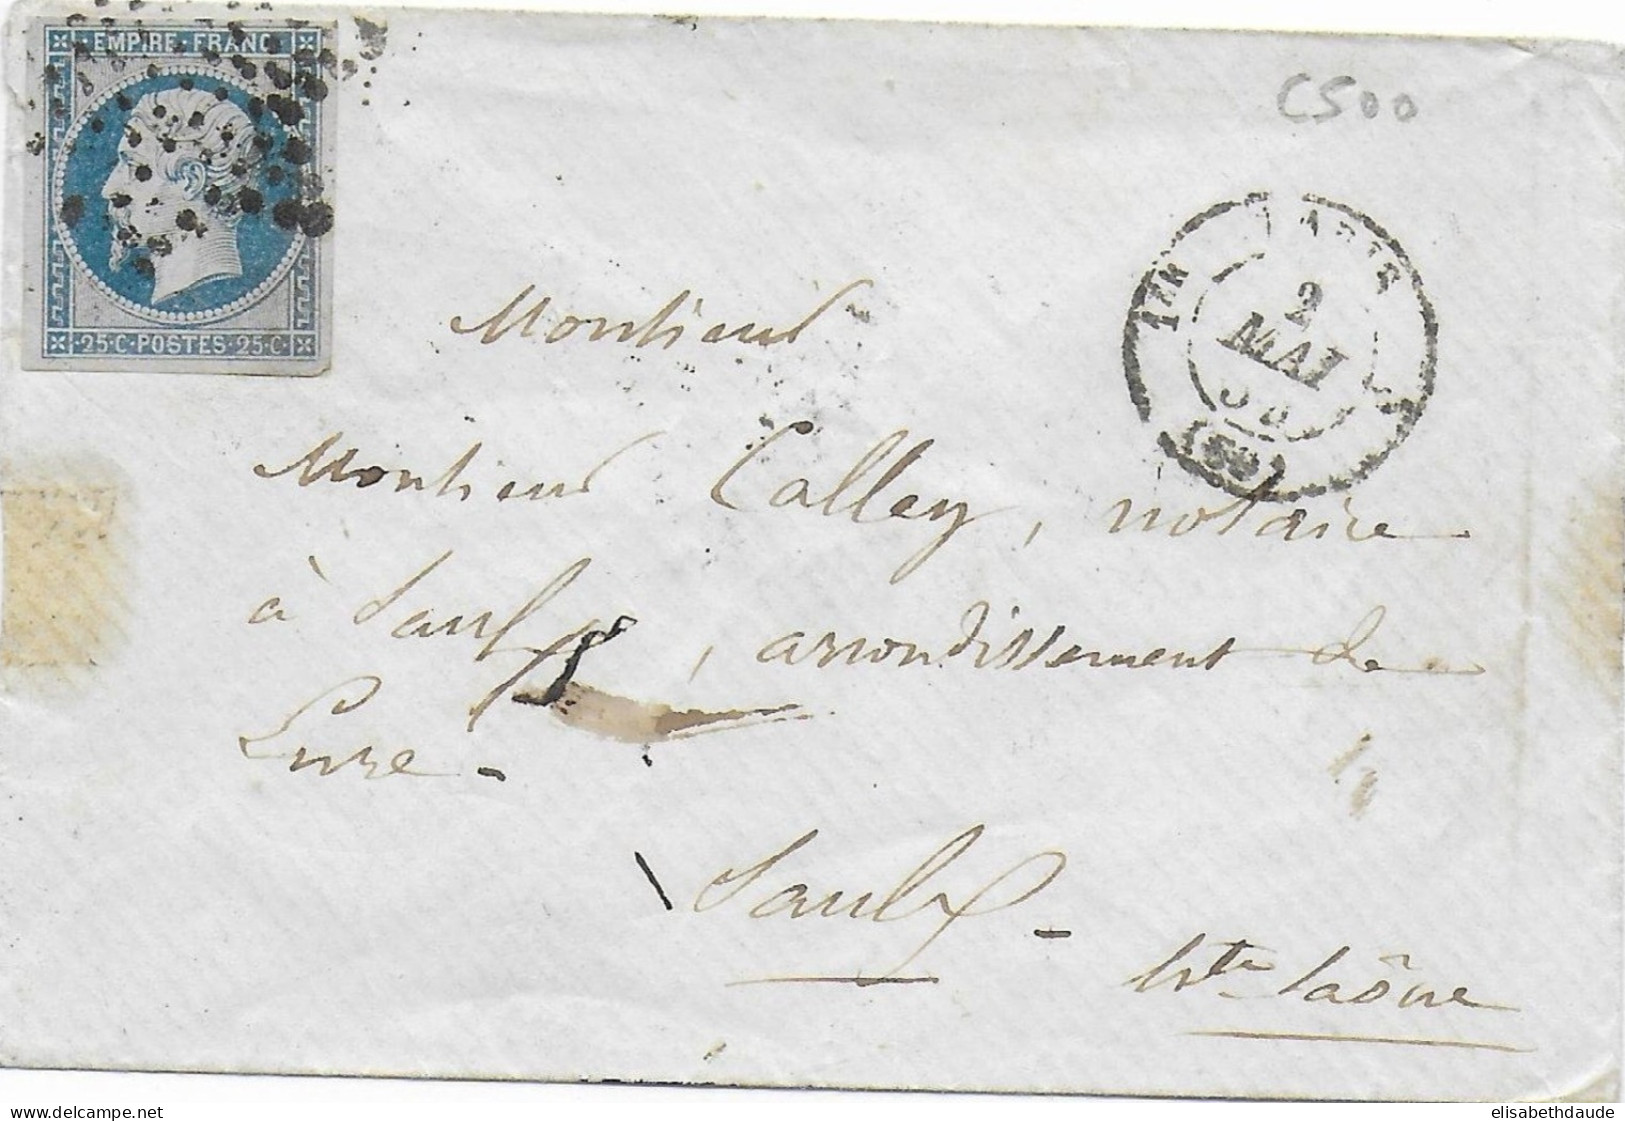 EMPIRE · FRANC
25·C·POSTES·25·C·
C500
PARIS
2
MAI
(60)
Monsieur
Monsieur Calley, notaire
à Saulx, arrondissement de
Lure -
Saulx -
hte Saône
delcampe.net
elisabethdaude